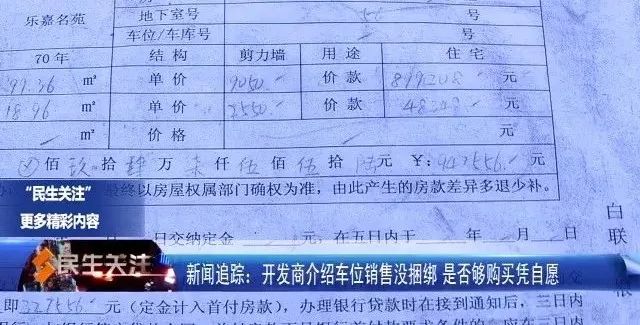 乐嘉名苑 地下室号 号
车位/车库号 号
70年 结构 剪力墙 用途 住宅
99.36 ㎡ 单价 9050 价款 899208 元
18.96 ㎡ 单价 2550 价款 48348 元
㎡ 价格 元
佰玖拾肆万柒仟伍佰伍拾陆元 ¥:947556元
最终以房屋权属部门确权为准，由此产生的房款差异多退少补。
“民生关注”
更多精彩内容
日交纳定金 元，在五日内于 年 月 日
白联
民生关注
新闻追踪：开发商介绍车位销售没捆绑 是否够购买凭自愿
即327556元（定金计入首付房款），办理银行贷款时在接到通知后，三日内